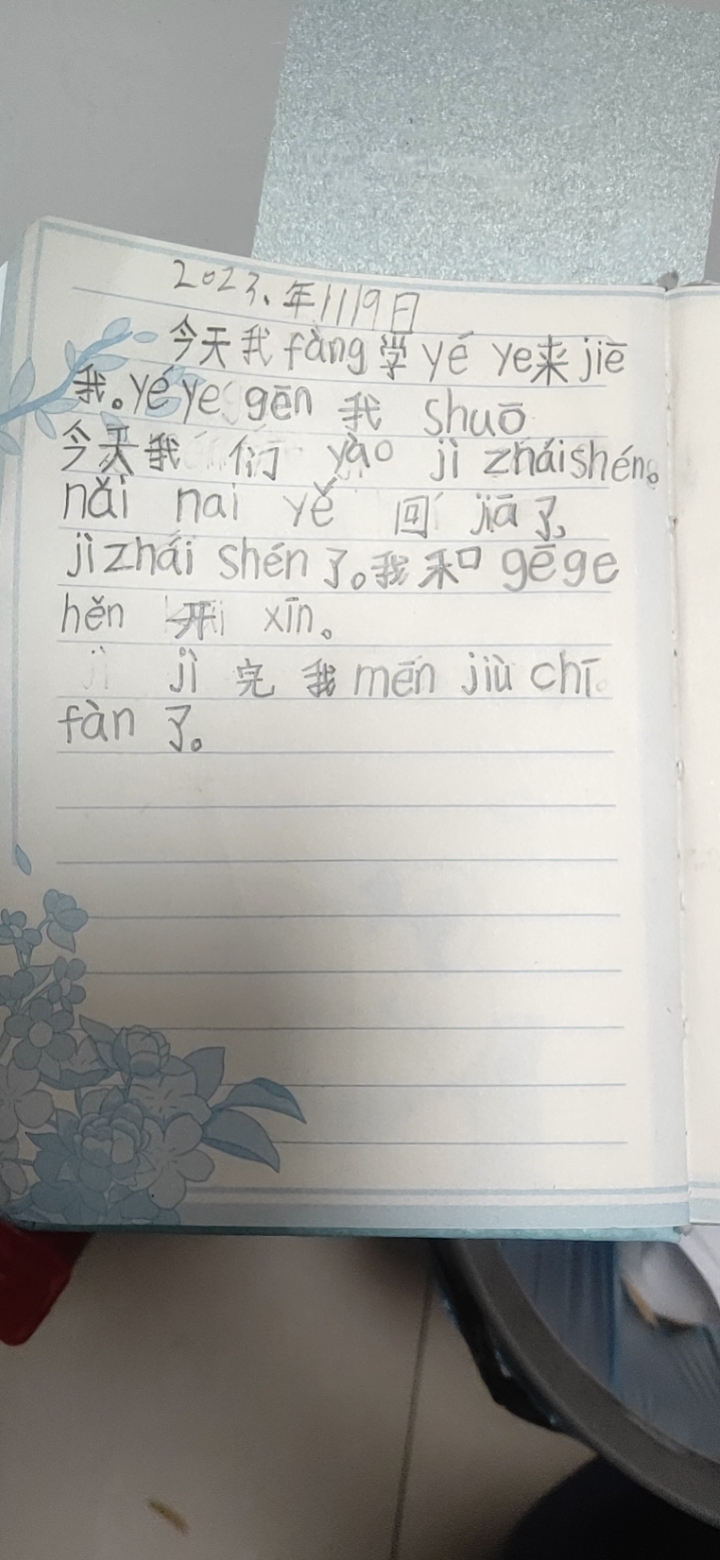 2023、年1119日
今天我fàng学yé ye来jiē
我。yé ye gēn 我 shuō
今天我们 yào jì zháishén。
nǎi nai yě 回 jiā了,
jì zhái shén了。我和gēge
hěn 开 xīn。
jì 完 我mēn jiù chī
fàn 了。